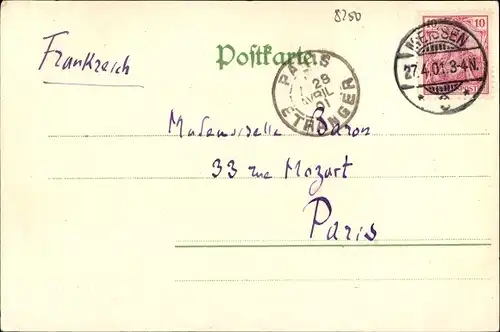 8250
Postkarte
Frankreich
MEISSEN
27.4.01.3-4N.
* 3 *
10 10
PARIS
28
AVRIL
01
ETRANGER
Mademoiselle Baron
33 rue Mozart
Paris